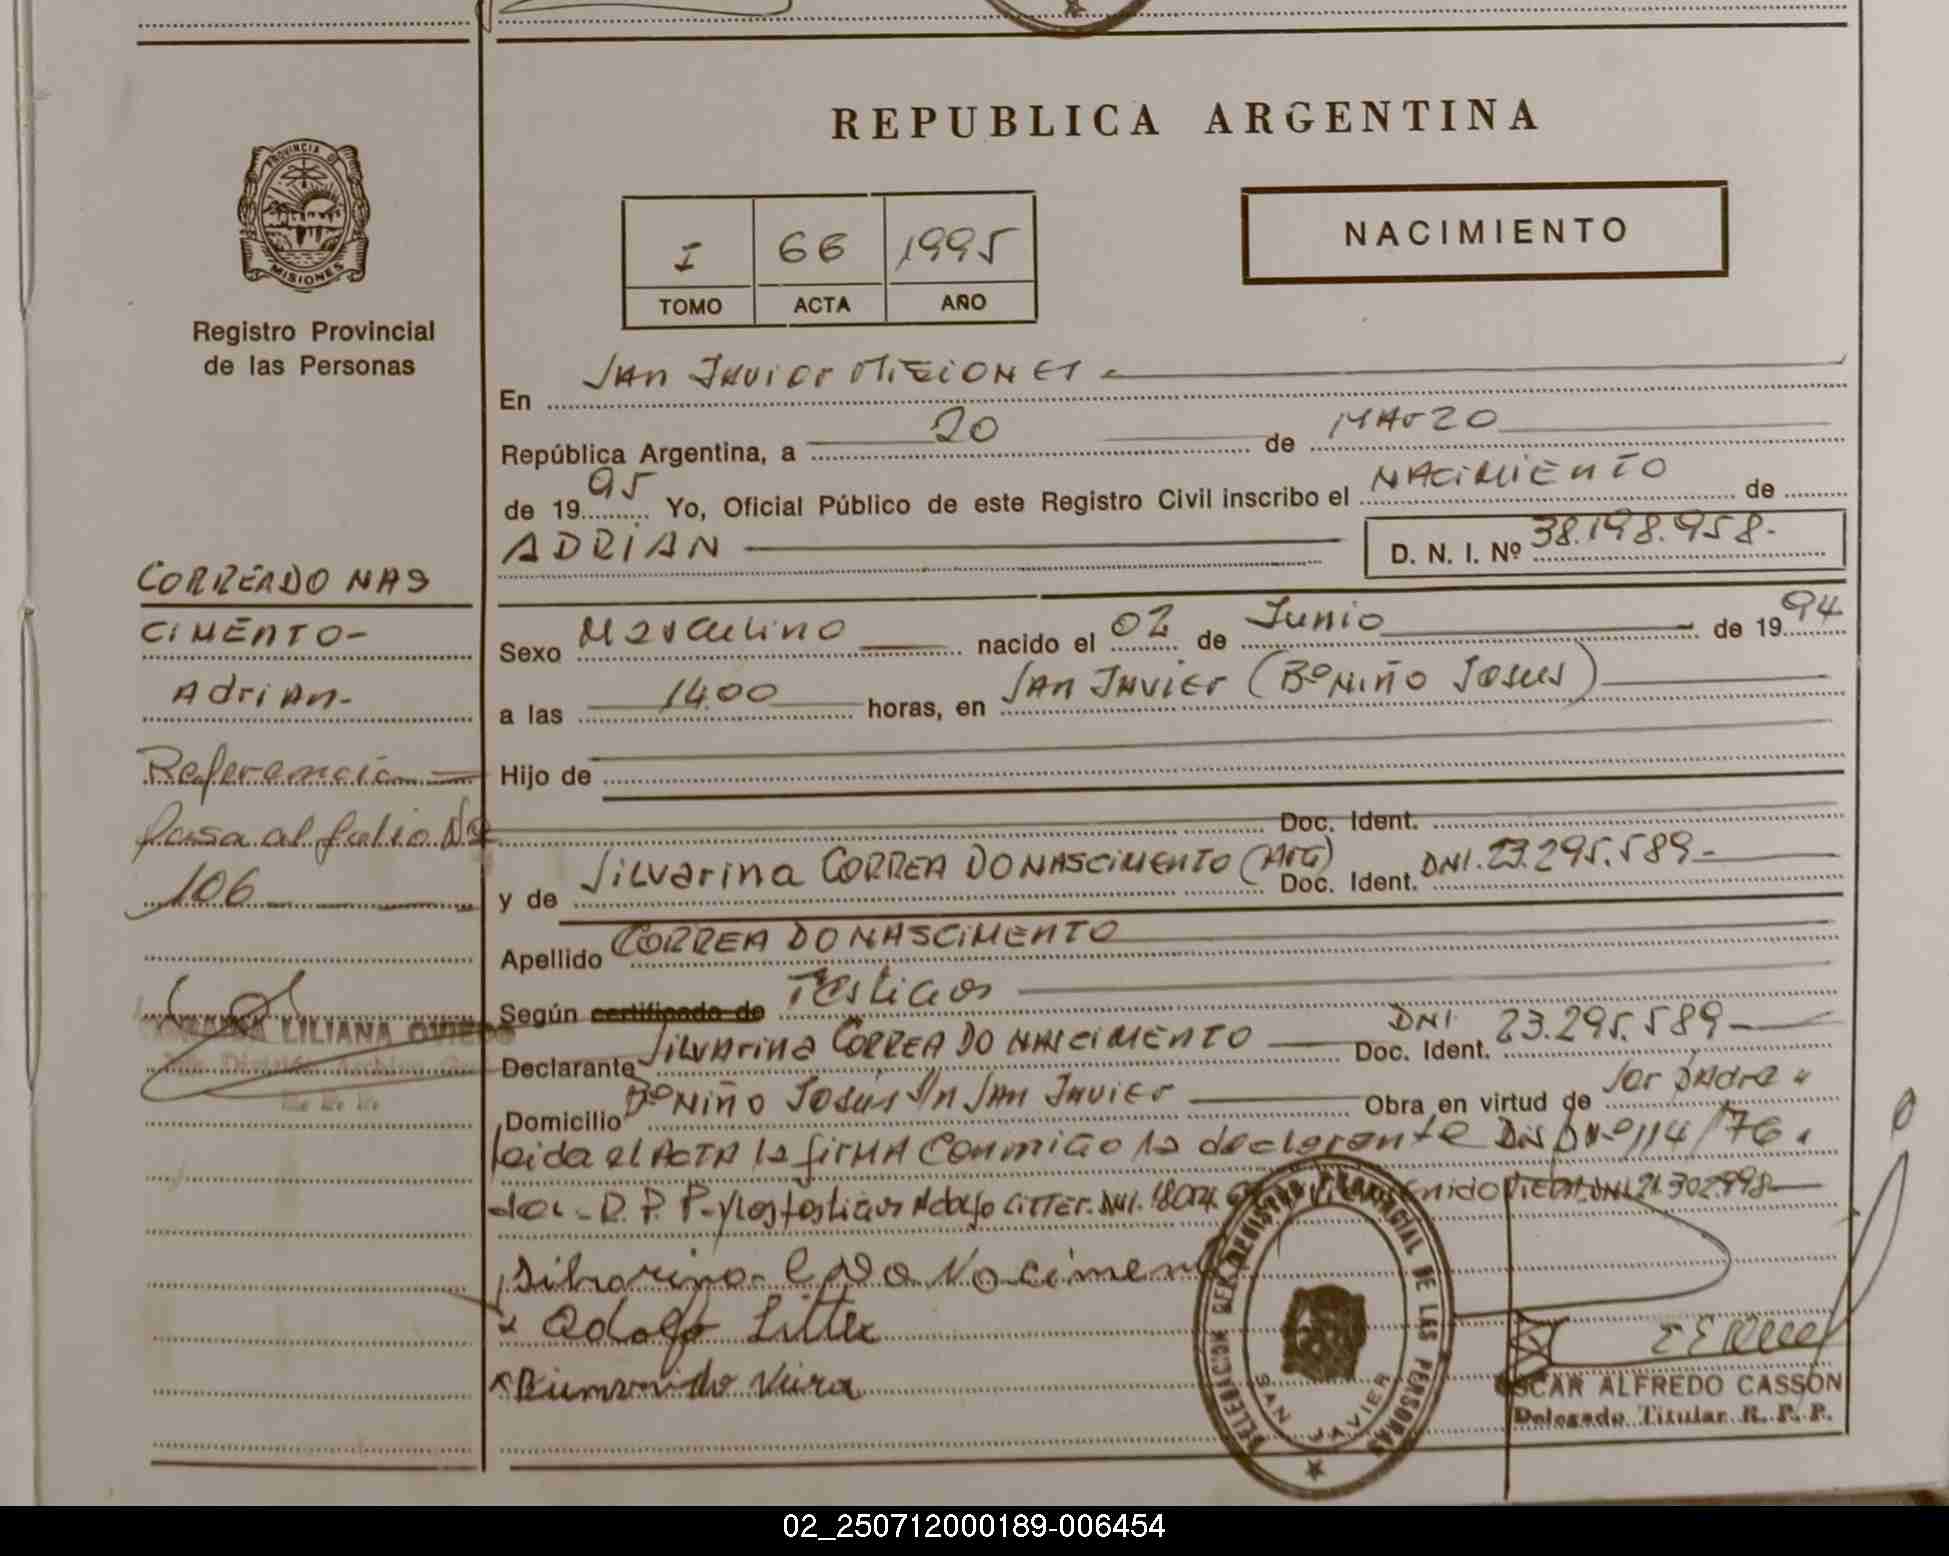 REPUBLICA ARGENTINA
PROVINCIA DE
MISIONES
Registro Provincial
de las Personas
I 66 1995
TOMO ACTA AÑO
NACIMIENTO
En San Javier Misiones
República Argentina, a 20 de Marzo
de 1995 Yo, Oficial Público de este Registro Civil inscribo el NACIMIENTO de
ADRIAN D. N. I. Nº 38.198.958.-
CORREA DO NAS
CIMENTO-
Adrian-
Referencia
pasa al folio Nº
106
LILIANA OVIEDO
Sexo Masculino nacido el 02 de Junio de 1994
a las 14.00 horas, en San Javier (Bº Niño Jesus)
Hijo de
Doc. Ident.
y de Silvarina CORREA DO NASCIMENTO (Arg) Doc. Ident. DNI. 23.295.589-
Apellido CORREA DO NASCIMENTO
Según certificado de Testigos
Declarante Silvarina CORREA DO NASCIMENTO Doc. Ident. DNI 23.295.589-
Domicilio Bº Niño Jesús S/n San Javier Obra en virtud de
leida el ACTA la firma conmigo la declarante Nº 114/76
del R.P.P. y los testigos Adolfo LITTER. DNI. DNI 21.302.998
Adolfo Litter
Vieira
DELEGACION DEL REGISTRO PROVINCIAL DE LAS PERSONAS
SAN JAVIER
OSCAR ALFREDO CASSON
Delegado Titular R. P. P.
02_250712000189-006454